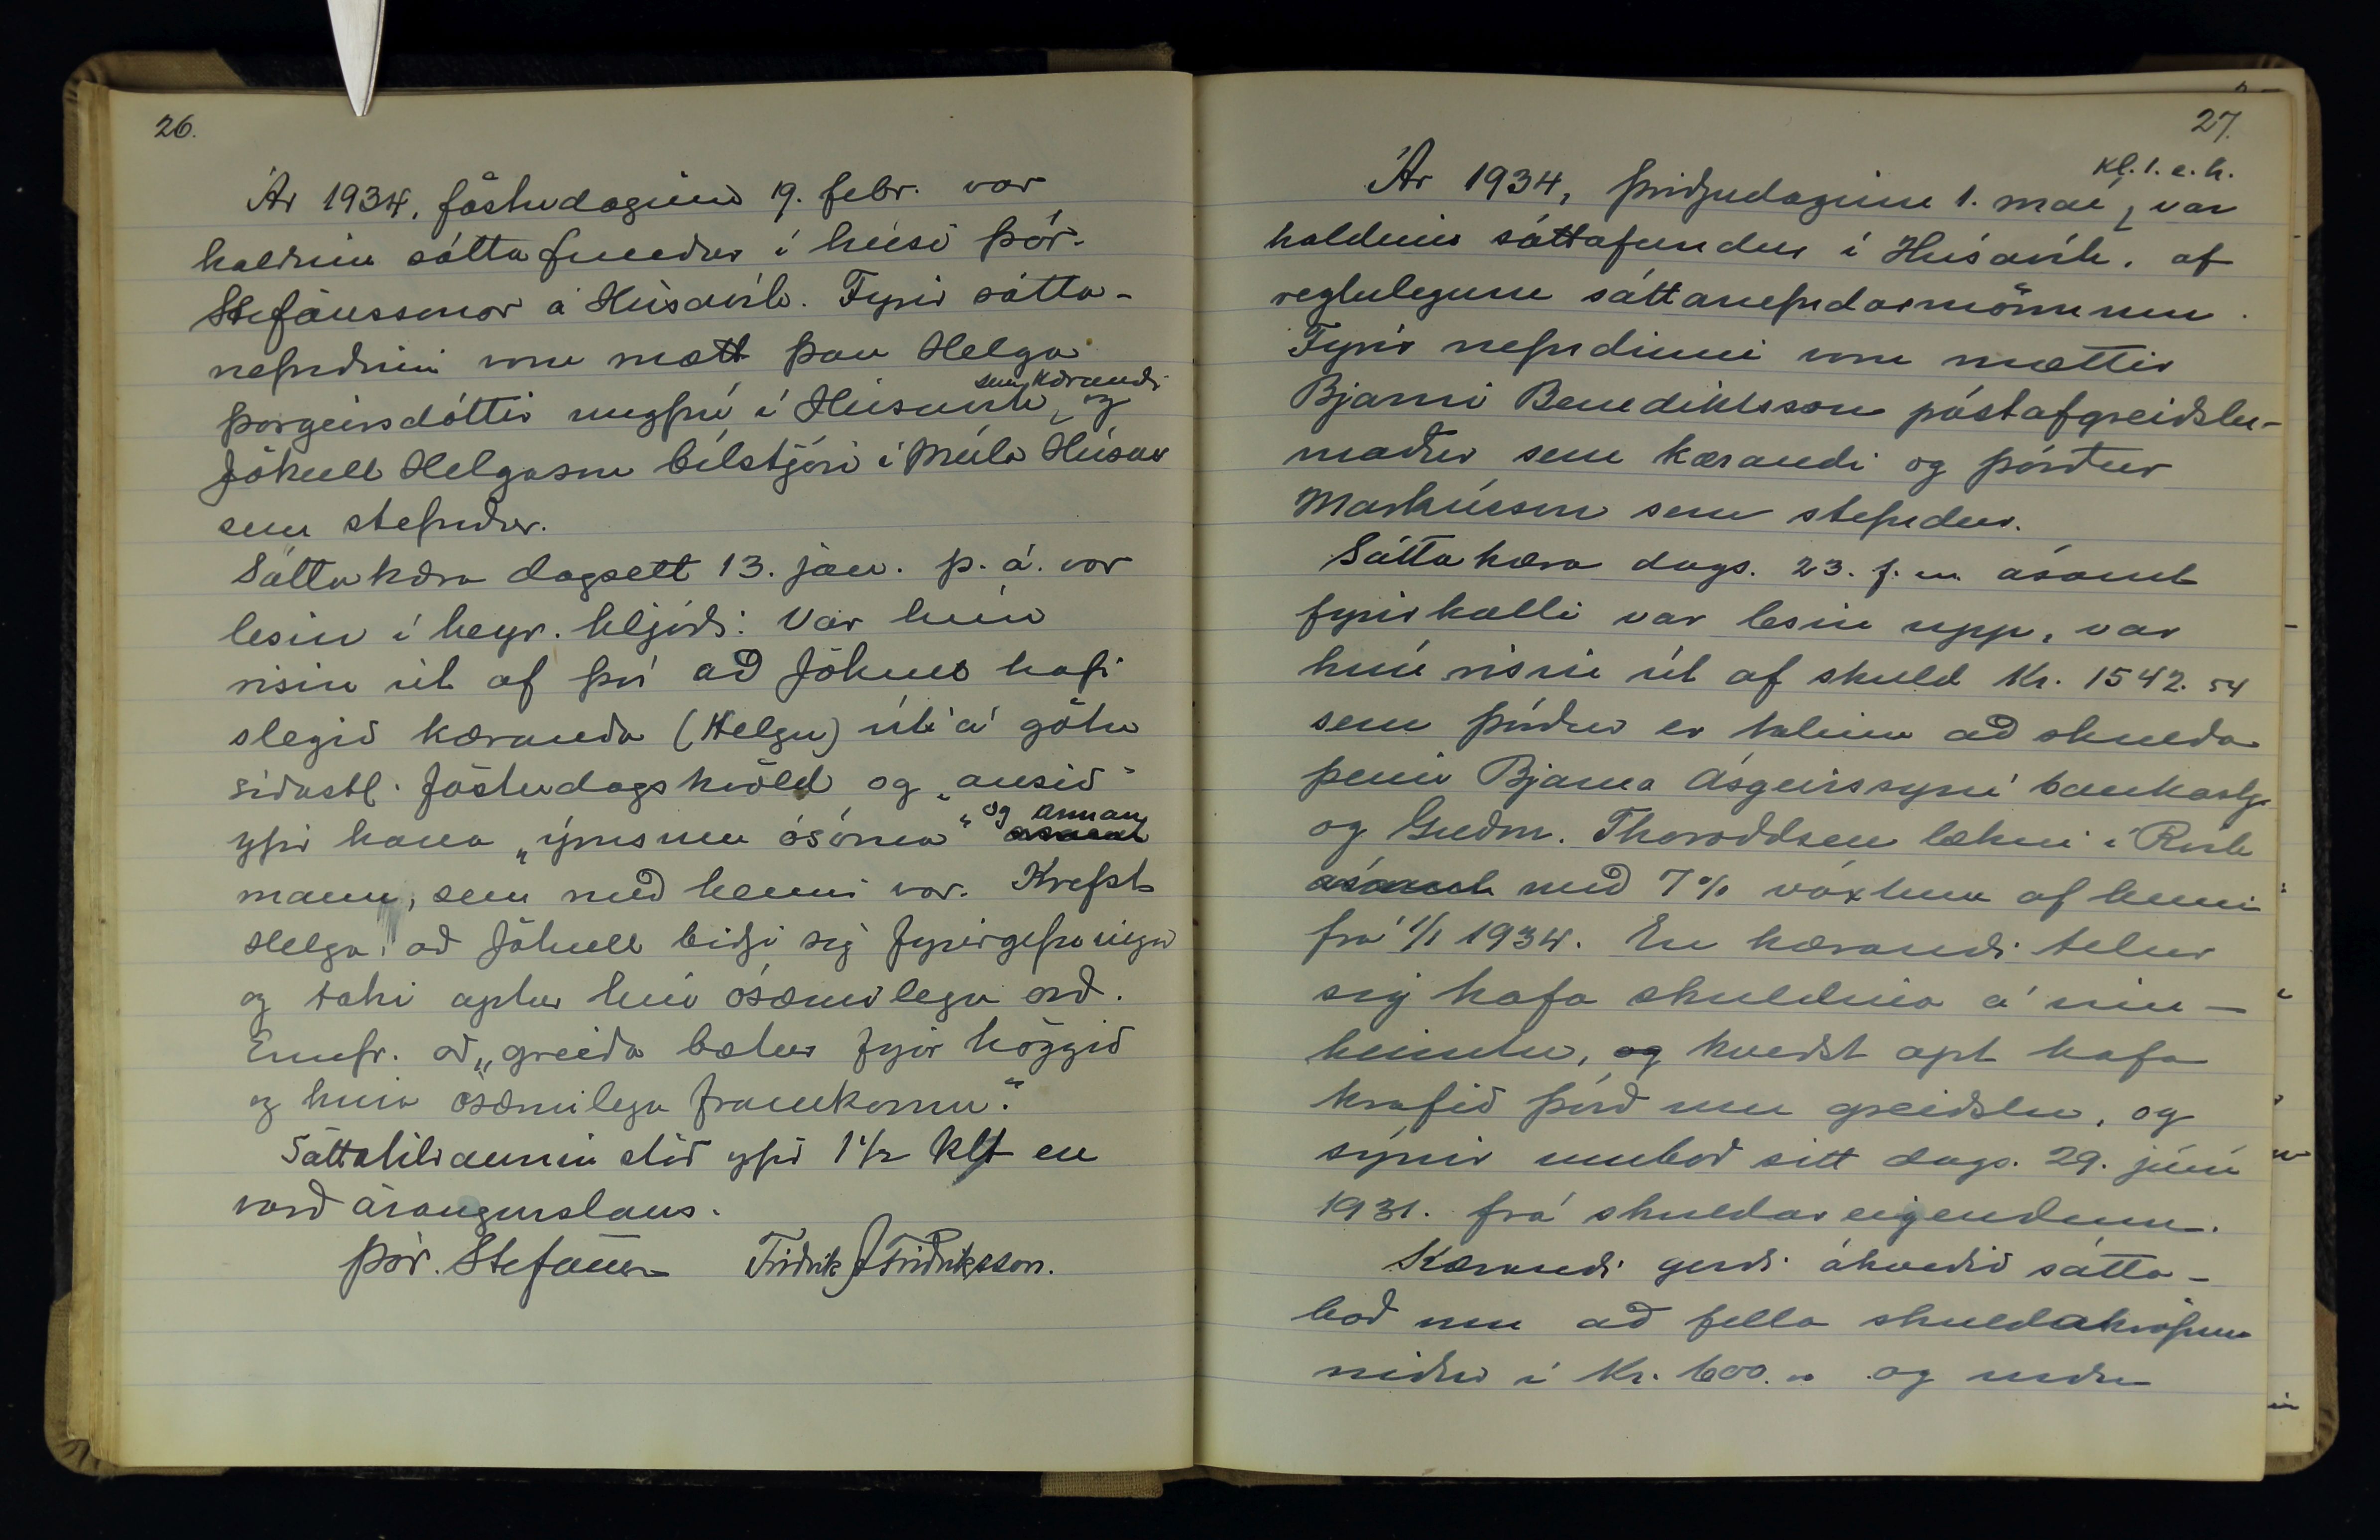 26.
Ár 1934, föstudaginn 19. febr. var
haldinn sáttafundur í húsi Þór.
Stefánssonar á Húsavík. Fyrir sátta-
nefndinni voru mætt þau Helga
Þorgeirsdóttir ungfrú í Húsavík, sem kærandi og
Jökull Helgason bílstjóri í Múla Húsav
sem stefndur.
Sáttakæra dagsett 13. jan. þ. á. var
lesin í heyr. hljóði: Var hún
risin út af því að Jökull hafi
slegið kæranda (Helgu) úti á götu
síðastl. föstudagskvöld og „ausið"
yfir hana „ýmsum ósóma" og annan
mann, sem með henni var. Krefst
Helga að Jökull biðji sig fyrirgefningar
og taki aptur hin ósæmilegu orð.
Ennfr. að „greiða bætur fyrir höggið
og hina ósæmilegu framkomu."
Sáttatilraunin stóð yfir 1 1/2 klst en
varð árangurslaus.
Þór. Stefánss Friðrik J Friðriksson.
27.
Kl. 1. e. h.
Ár 1934, þriðjudaginn 1. maí, var
haldinn sáttafundur í Húsavík, af
reglulegum sáttanefndarmönnum.
Fyrir nefndinni voru mættir
Bjarni Benediktsson póstafgreiðslu-
maður sem kærandi og Þórður
Markússon sem stefndur.
Sáttakæra dags. 23. f. m. ásamt
fyrirkalli var lesin upp, var
hún risin út af skuld Kr. 1542.54
sem Þórður er talinn að skulda
þeim Bjarna Ásgeirssyni bankastj.
og Guðm. Thoroddsen lækni í Rvík
ásamt með 7% vöxtum af henni
frá 1/1 1934. En kærandi telur
sig hafa skuldina á inn-
heimtu, og kveðst opt hafa
krafið Þórð um greiðslu, og
sýnir umboð sitt dags. 29. júní
1931. frá skuldareigendum.
Kærandi gerði ákveðið sátta-
boð um að fella skuldakröfuna
niður í Kr. 600.00 og